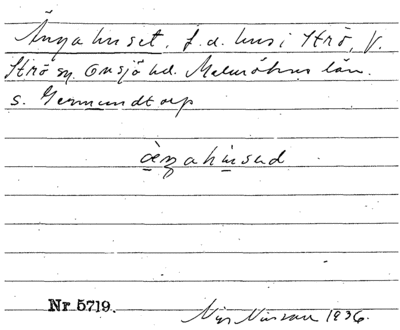 Ängahuset, f.d. hus i Strö, V.
Strö sn. Onsjö hd. Malmöhus län.
s. Germundtorp
Nr 5719.
Nils Nilsson 1936.